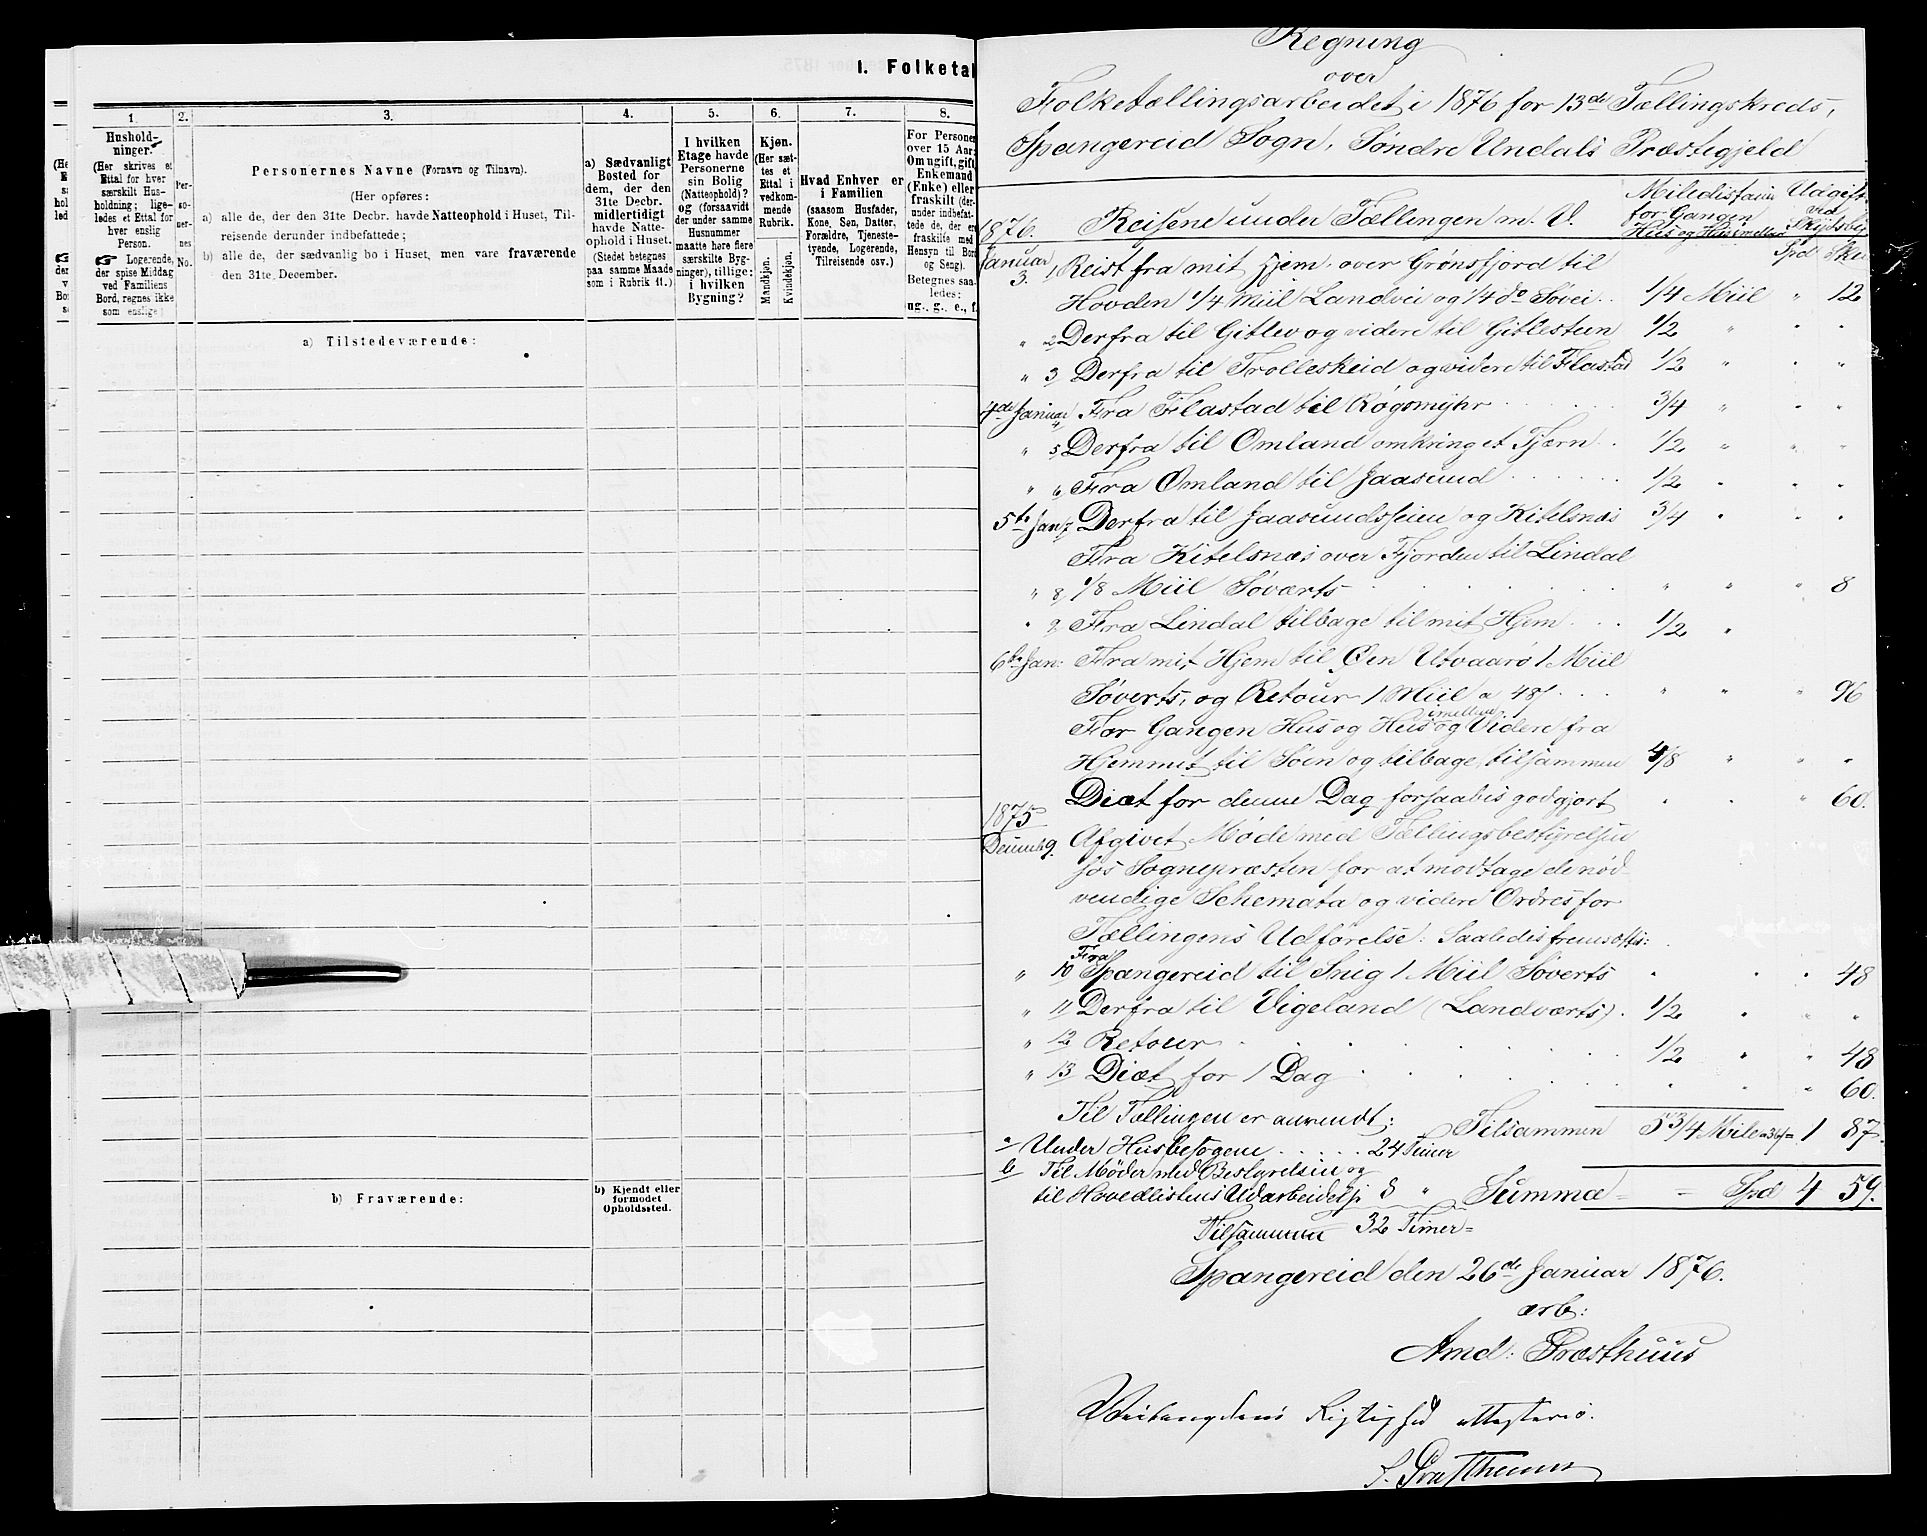 I. Folketal
1.
Hushold-
ninger.
(Her skrives et
Ettal for hver
særskilt Hus-
holdning; lige-
ledes et Ettal for
hver enslig
Person.
☛ Logerende,
der spise Middag
ved Familiens
Bord, regnes ikke
som enslige)
2.
Per-
so-
ner-
nes
No.
3.
Personernes Navne (Fornavn og Tilnavn).
(Her opføres:
a) alle de, der den 31te Decbr. havde Natteophold i Huset, Til-
reisende derunder indbefattede;
b) alle de, der sædvanlig bo i Huset, men vare fraværende
den 31te December.
a) Tilstedeværende:
4.
a) Sædvanligt
Bosted for
dem, der den
31te Decbr.
midlertidigt
havde Natte-
ophold i Huset.
(Stedet betegnes
paa samme Maade
som i Rubrik 11.)
5.
I hvilken
Etage havde
Personerne
sin Bolig
(Natteophold)?
og (forsaavidt
der under samme
Husnummer
maatte høre flere
særskilte Byg-
ninger), tillige:
i hvilken
Bygning?
6.
Kjøn.
(Her sæt-
tes et
Ettal i
vedkom-
mende
Rubrik.
Mandkjøn.
Kvindekjøn.
7.
Hvad Enhver er
i Familien
(saasom Husfader,
Kone, Søn, Datter,
Forældre, Tjeneste-
tyende, Logerende,
Tilreisende osv.)
8.
For Persone
over 15 Aar:
Om ugift, gift
Enkemand
(Enke) eller
fraskilt (der-
under indbefat-
tede de, der er
fraskilte med
Hensyn til Bord
og Seng).
Betegnes saa-
ledes:
ug., g., e., f.
b) Fraværende:
b) Kjendt eller
formodet
Opholdssted.
Regning
over
Folketællingsarbeidet i 1876 for 13de Tællingskreds,
Spangereid Sogn, Søndre Undals Præstegjeld
1876. Reisene under Tællingen m. V. Miledistan for Gangen Hus og Hus imellem Udgift ved Skydsbg
Spd Sk
Januar
3. 1 Reist fra mit Hjem over Grønsfjord til
Hovden 1/4 Miil Landvei og 1/4 do Søvei .. 1/4 Miil " 12
" 2 Derfra til Gitlev og videre til Gitlesteen 1/2 " " "
" 3 Derfra til Trolleskeid og videre til Flastad 1/2 " " "
4de Januar 4 Fra Flastad til Røgsmyhr 3/4 " " "
" 5 Derfra til Omland omkring et Tjern . 1/2 " " "
" 6 Fra Omland til Jaasund 1/2 " " "
5te Jan 7 Derfra til Jaasundsheien og Kitelsnæs 3/4 " " "
Fra Kitelsnæs over Fjorden til Lindal
" 8 1/8 Miil Søværts " " " 8
" 9 Fra Lindal tilbage til mit Hjem 1/2 "
6te Jan: Fra mit Hjem til Øen Utvaarø 1 Miil
Søverts, og Retour 1 Miil a 48 s " " " 96
For Gangen Hus og Hus imellem og Videre fra
Hjemmet til Søen og tilbage, tilsammen 4/8 " " "
Diæt for denne Dag forhaabes godgjort " " 60.
1875
Decemb 9. Afgivet Møde med Tællingsbestyrelsen
hos Sognepræsten for at modtage de nød-
vendige Schemata og videre Ordres for
Tællingens Udførelse: Saaledes fremsættes:
" 10 Fra Spangereid til Snig 1 Miil Søverts " " " 48
" 11 Derfra til Vigeland (Landværts) . 1/2 " " "
" 12 Retour 1/2 " " 48
" 13 Diæt for 1 Dag " " " 60.
Til Tællingen er anvendt: Tilsammen 5 3/4 Mile a 36 s = 1 87.
a Under Husbesøgene ..... 24 Timer
b Til Møder med Bestyrelsen og
til Hovedlistens Udarbeidelse 8 " Summa = = Spd 4 59.
Tilsammen 32 Timer =
Spangereid den 26de Januar 1876.
ærb:
Amd: Præsthuus
Rigtighed attesteres.